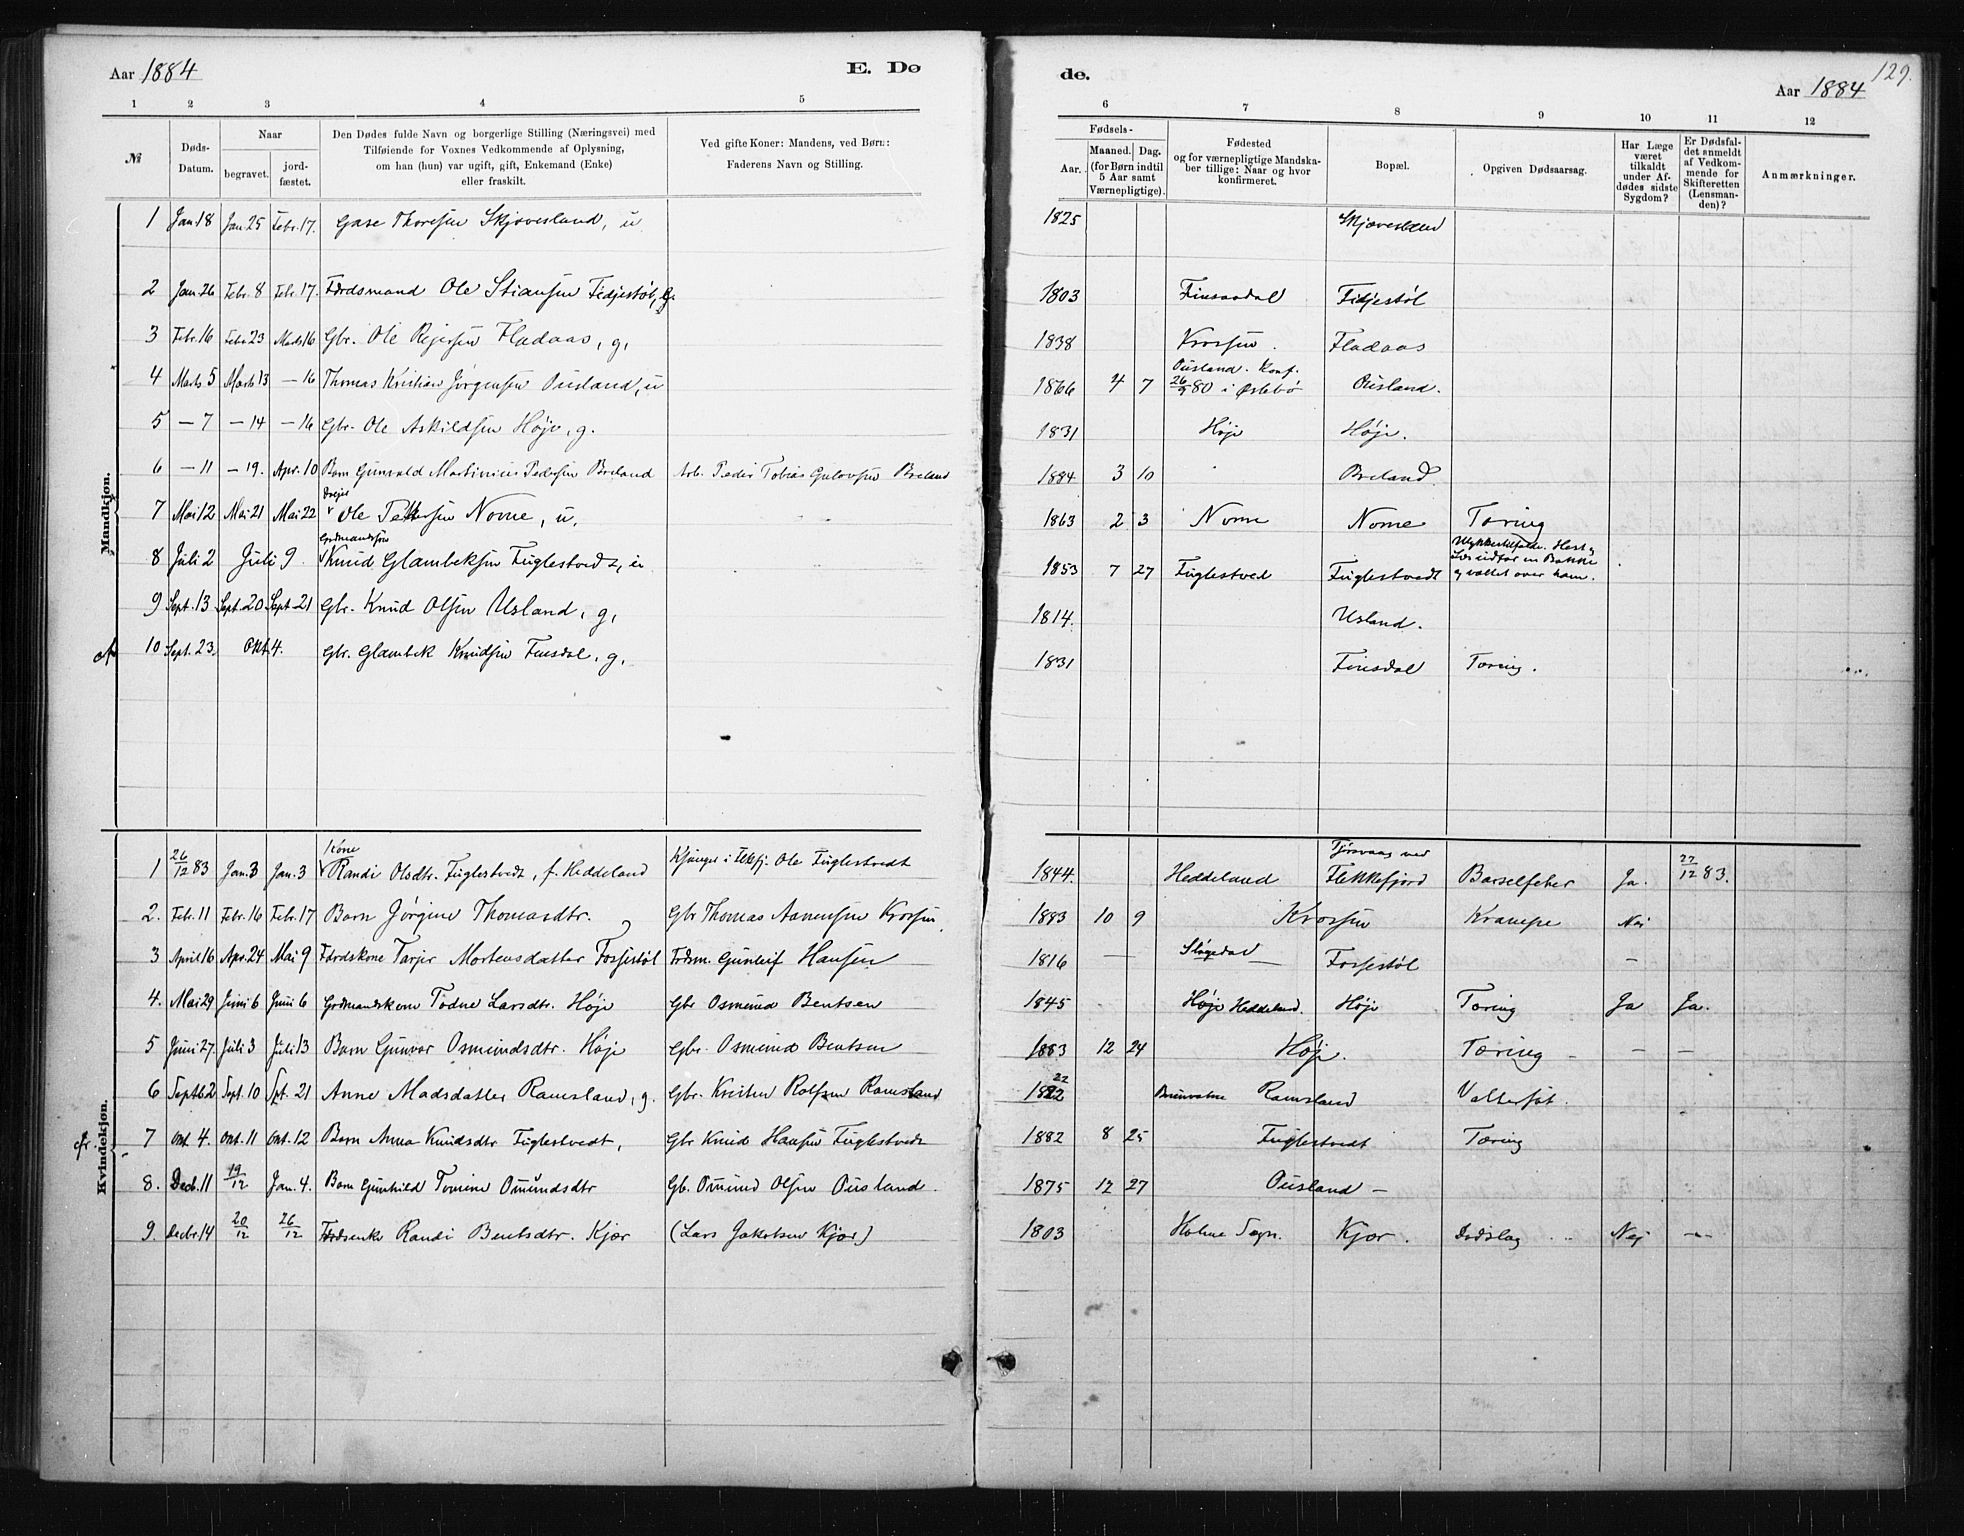 Aar 1884 E. Dø de. Aar 1884 129.
1 2 3 4 5 6 7 8 9 10 11 12
№ Døds-Datum. Naar begravet. jord-fæstet. Den Dødes fulde Navn og borgerlige Stilling (Næringsvei) med Tilføiende for Voxnes Vedkommende af Oplysning, om han (hun) var ugift, gift, Enkemand (Enke) eller fraskilt. Ved gifte Koner: Mandens, ved Børn: Faderens Navn og Stilling. Fødsels- Aar. Maaned. Dag. (for Børn indtil 5 Aar samt Værnepligtige). Fødested og for værnepligtige Mandskaber tillige: Naar og hvor konfirmeret. Bopæl. Opgiven Dødsaarsag. Har Læge været tilkaldt under Afdødes sidste Sygdom? Er Dødsfaldet anmeldt af Vedkommende for Skifteretten (Lensmanden)? Anmærkninger.
Mandkjøn.
1 Jan. 18 Jan. 25 Febr. 17. Thoresen Skjævesland, u. 1825 Skjævesland
2 Jan. 26 Febr. 8 Febr. 17. Fdrdsmand Ole Stiansen Fidjestøl, 1803 Finsaadal Fidjestøl
3 Febr. 16 Febr. 23 Marts 16 Gbr. Ole Reiersen Fladaas, g, 1838 Krossen. Fladaas
4 Marts 5 Marts 13 — 16 Thomas Kristian Jørgensen Ousland, u 1866 4 7 Ousland. Konf. 26/9 80 i Øslebø Ousland.
5 — 7 — 14 — 16 Gbr. Ole Askildsen Høje, g. 1831 Høje Høje.
6 — 11 — 19. Apr. 10 Barn Gunvald Martinius Pedersen Breland Arb. Peder Tobias Gulovsen Breland 1884 3 10 Breland.
7 Mai 12 Mai 21 Mai 22 Ole Pettersen Nome, u. 1863 2 3 Nome Nome Tæring
8 Juli 2 Juli 9 Grdmandssøn Knud Glambeksen Fuglestvedt, u 1853 7 27 Fuglestved Fuglestvedt Ulykkestilfælde. Hest og Læs udfor en Bakke og væltet over ham.
9 Sept. 13 Sept. 20 Sept. 21 Gbr. Knud Olsen Usland, g, 1814. Usland.
10 Sept. 23. Okt. 4. Gbr. Glambek Knudsen Finsdal, g, 1831 Finsdal Tæring.
Kvindekjøn.
1 26/12 83 Jan. 3 Jan. 3 Kone Randi Olsdtr. Fuglestvedt, f. Heddeland Ole Fuglestvedt 1844. Heddeland Tjørsvaag ved Flekkefjord Barselfeber Ja. 27/12 83.
2. Febr. 11 Febr. 16 Febr. 17 Barn Jørgine Thomasdtr. Gbr Thomas Aanensen Krossen 1883 10 9 Krossen Krampe Nei
3 April 16 Apr. 24 Mai 9 Fdrdskone Tarjer Mortensdatter Fossestøl Fdrdsm. Gunleif Hansen 1816 — Fossestøl —
4. Mai 29 Juni 6 Juni 6 Grdmandskone Todne Larsdtr. Høje Gbr Osmund Bentsen 1845 Høje Heddeland. Høje Tæring Ja Ja.
5 Juni 27. Juli 3 Juli 13 Barn Gunvor Osmundsdtr. Høje Gbr. Osmund Bentsen 1883 12 24 Høje. Tæring — — —
6 Septb. 2 Sept. 10 Spt. 21 Anne Madsdatter Ramsland, g. Gbr. Kristen Rolfsen Ramsland 1822 22 Ramsland Vattersot.
7 Okt. 4. Okt. 11 Okt. 12 Barn Anna Knudsdtr Fuglestvedt, Gbr Knud Hansen Fuglestvedt 1882 8 25 Fuglestvedt Tæring
8. Decb. 11 19/12 Jan. 4. Barn Gunhild Tomine Omundsdtr Gb. Omund Olsen Ousland. 1875 12 27 Ousland —
9. Decbr. 14 20/12 26/12 Fdrdsenke Randi Bentsdtr. Kjær (Lars Jakobsen Kjær) 1803 Holme Sogn. Kjær. Dødslag Nej —